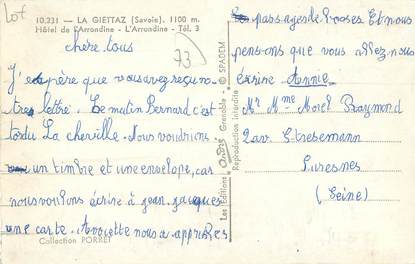 Lot
10.231 — LA GIETTAZ (Savoie). 1100 m.
Hôtel de l'Arrondine - L'Arrondine - Tél. 3
chère tous
73
J'espère que vous avez reçu no
tres lettre. Ce matin Bernard c'est
tordu La cheville. Nous voudrions
un timbre et une envelope, car
nous voulons écrire à jean-jacques
une carte. Anviette nous a apprises
Collection PORRET
Les Editions André Grenoble - © SPADEM
Reproduction interdite
pas de choses Et nous
pensons que vous allez nous
écrire Annie
Mr Mme Morel Raymond
2 av. Stresemann
Suresnes
(Seine)